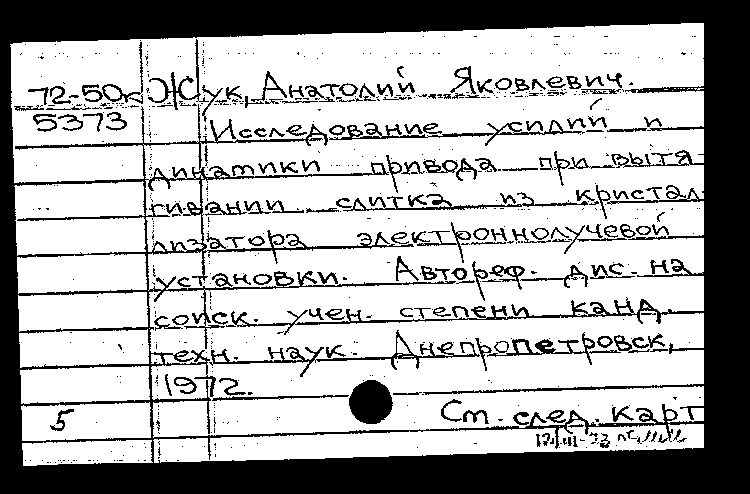 72-50к Жук, Анатолий Яковлевич.
5373 Исследование усилий и
динамики привода при вытя
гивании слитка из кристал-
лизатора электроннолучевой
установки. Автореф. дис. на
соиск. учен. степени канд.
техн. наук. Днепропетровск,
1972.
5 См. след. карт